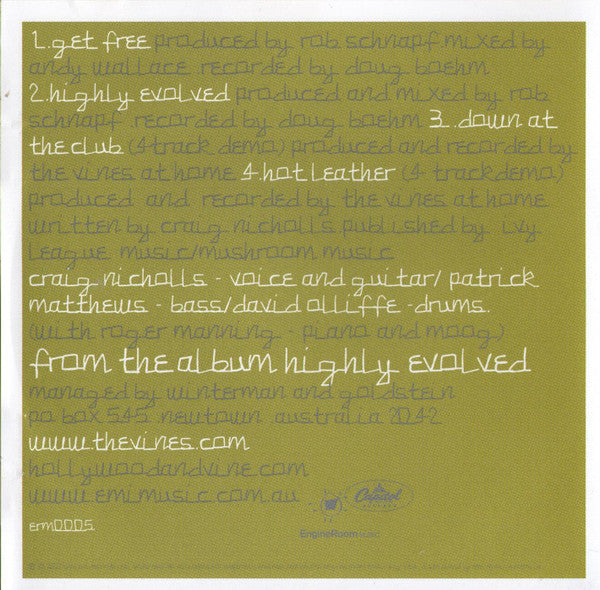 1.get free produced by rob schnapf mixed by
andy wallace recorded by doug boehm
2.highly evolved produced and mixed by rob
schnapf .recorded by doug boehm 3. .down at
the club (4track demo) produced and recorded by
the vines at home 4.hot leather (4 trackdemo)
produced and recorded by the vines at home
written by craig nicholls published by ivy
league music/mushroom music
craig nicholls - voice and guitar/ patrick
matthews - bass/david olliffe -drums.
(with roger manning - piano and moog)
from the album highly evolved
managed by winterman and goldstein
po box 545 newtown australia 2042
www.thevines.com
hollywoodandvine.com
www.emimusic.com.au
Capitol
EngineRoomMusic
erm0005